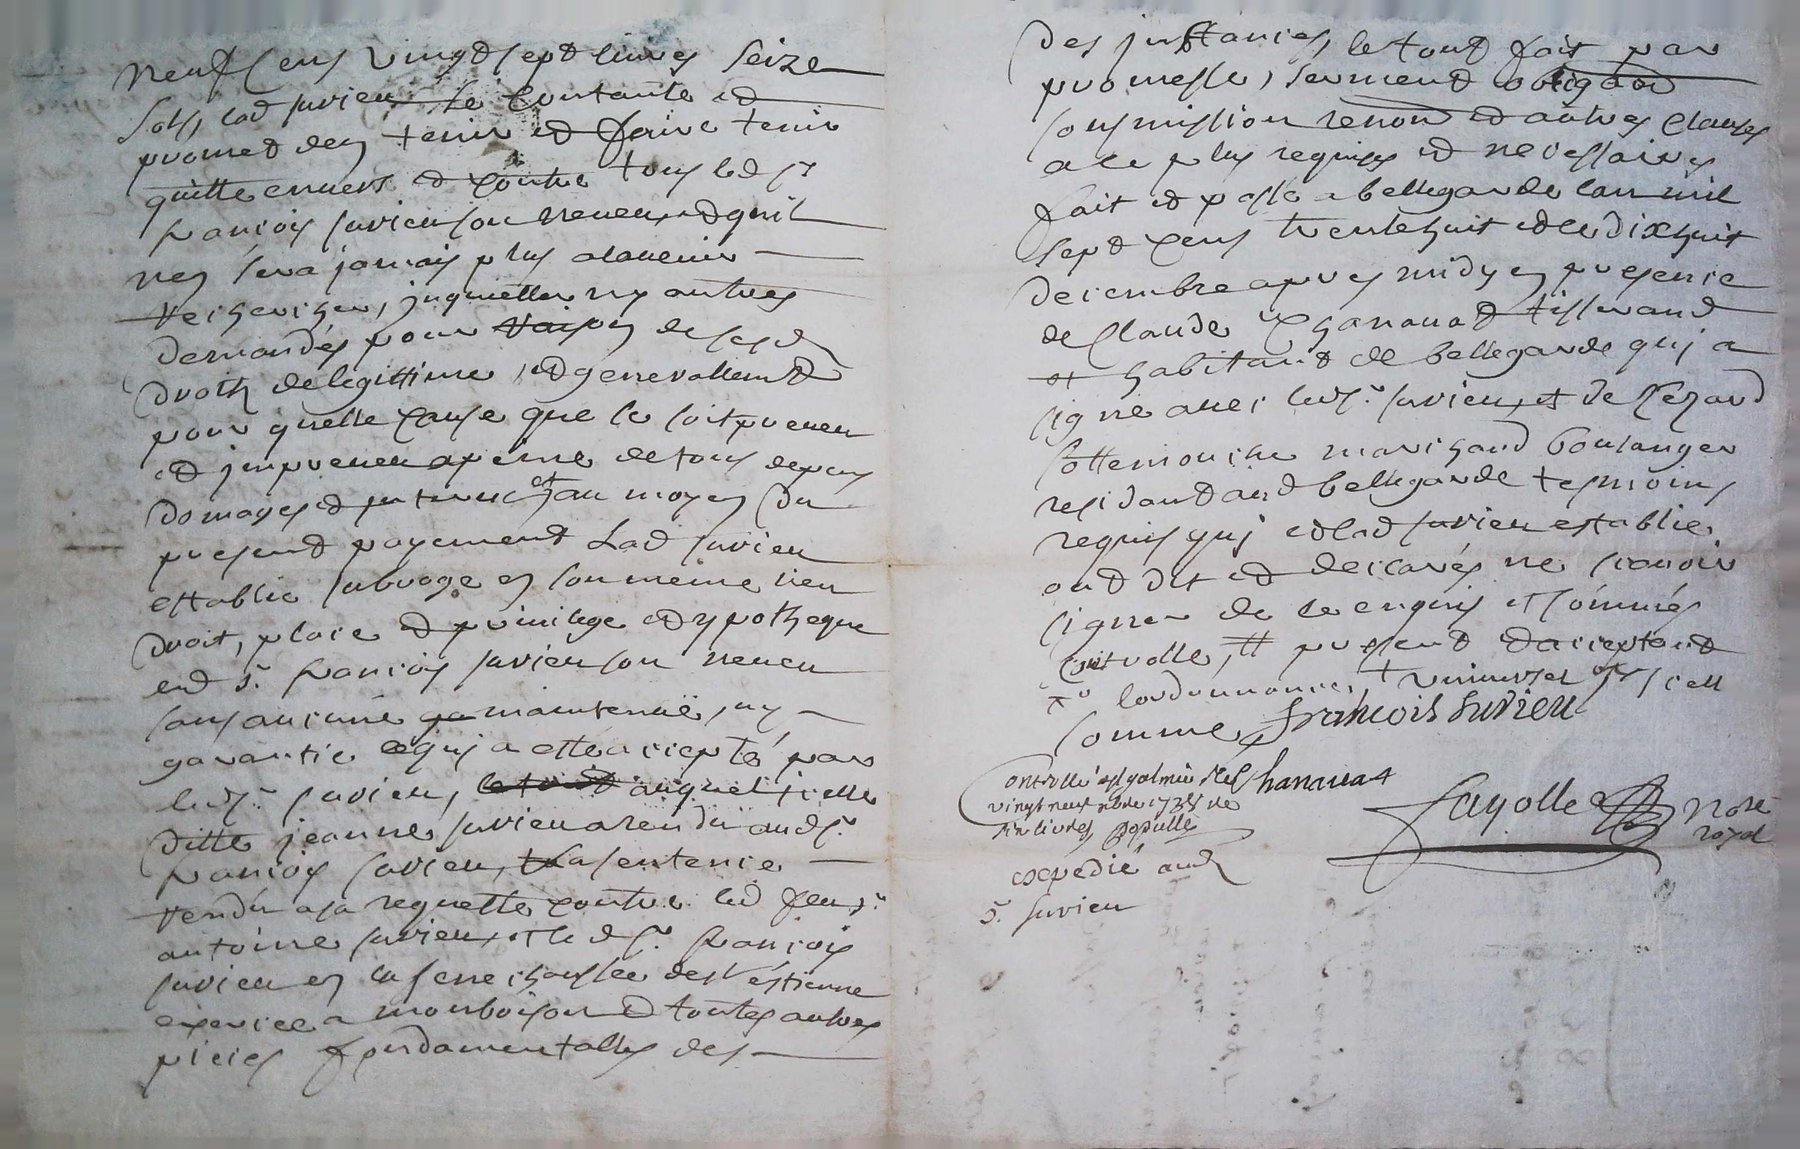 neuf cens vingt sept livres seize
sols, lad surieu se contante et
promet den tenir et faire tenir
quitte envers et contre tous led sr
francois surieu son neveu, et quil
nen sera jamais plus alavenir
recherchér, jnquietter ny autres
demandés pour raison de sesd
droits delegittime, et generallemt
pour quelle cause que ce soit preveu
et jmpreveu apeine de tous depens
domages et interests et au moyen du
present payement Lad surieu
establie subroge en son meme lieu
droit, place et privilege et ypotheque
led sr. francois surieu son neveu
sans aucune maintenüe, ny
garantie ce qui a ette accepté par
led sr. surieu, le tout auquel icelle
ditte jeanne surieu a rendu aud sr.
francois surieu, la sentence
rendu a sa requette contre led feu sr.
antoine surieu, et le d sr. francois
surieu en la senechaussée de st éstienne
exercee a monboison et toutes autres
pieces fondamentalles des
des jnstances, le tout fait par
promesse, serment obligaon
soubmission renon et autres clauses
a ce plus requises et necessaires
fait et passé a bellegarde lan mil
sept cens trente huit et le dixhuit
decembre apres midy en presence
de Claude Chanavat tisserand
et habitant de bellegarde quj a
signé avec led sr. surieu, et de
Sottemouche marchand boulanger
residant aud bellegarde tesmoins
requis quj et lad surieu establie
ont dit et declarés ne scavoir
signer de ce enquis et sommés
Controlle, present et acceptant
lordonnance,
somme, francois Surieu
Controllé a st galmier le Chanavat
vingt neuf xbre 1738 re
six livres
fayolle nore
royal
expedié aud
sr. surieu